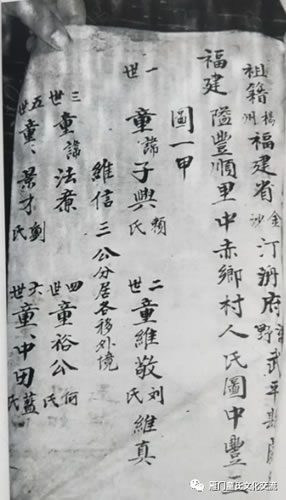 祖籍楊州金沙福建省汀洲府 武平縣
福建隘豐順里中赤鄉村人氏圖中豐
圖一甲
一世 童諱子興 顏氏 二世 童維敬 刘氏 維真
維信 三公分居各移外境
三世 童諱法憲 四世 童裕公 何氏
五世 童景才 劉氏 六世 童中田 藍氏
雁门童氏文化交流